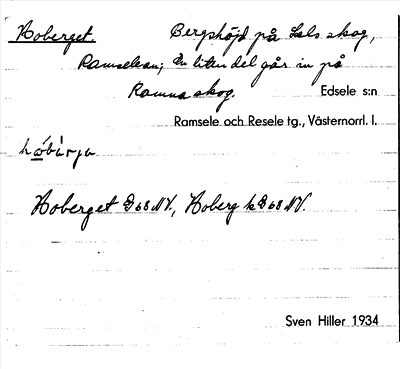 Hoberget. Bergshöjd på Lals skog,
Ramselean; En liten del går in på
Ramna skog. Edsele s:n
Ramsele och Resele tg., Västernorrl. l.
Hoberget G 68 NV., Hoberg k G 68 NV.
Sven Hiller 1934